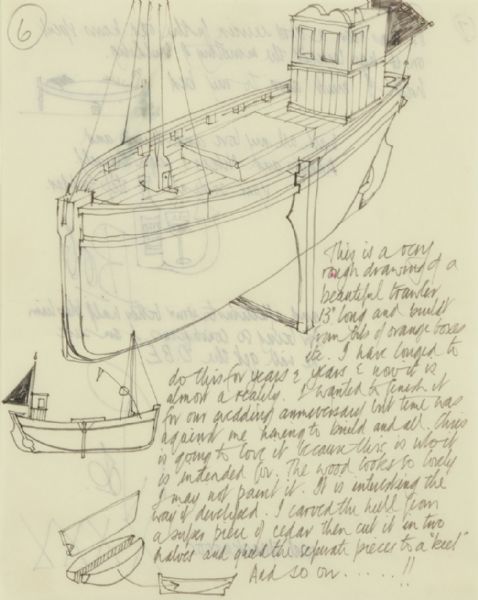 6
This is a very
rough drawing of a
beautiful trawler
13" long and built
from bits of orange boxes
etc. I have longed to
do this for years & years & now it is
almost a reality. I wanted to finish it
for our wedding anniversary but time was
against me having to build and all. Chris
is going to love it because this is who it
is intended for. The wood looks so lovely
I may not paint it. It is interesting the
way it developed. I carved the hull from
a super piece of cedar then cut it in two
halves and glued the separate pieces to a "keel"
And so on......!!